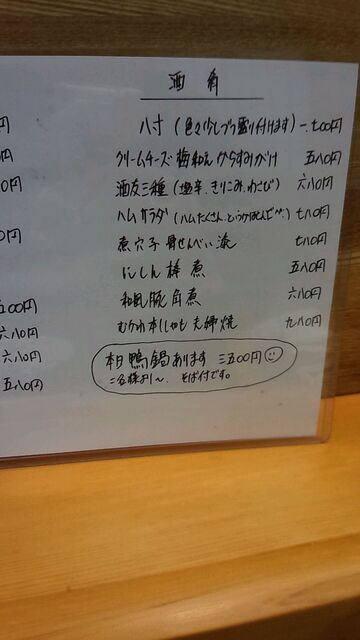 酒肴
八寸(色々少しづつ盛り付けます)一、七〇〇円
クリームチーズ梅和え からすみがけ 五八〇円
酒友三種(塩辛、きりこみ、わさび) 六八〇円
ハムサラダ(ハムたくさん、というかほとんどハム) 七八〇円
煮穴子 骨せんべい添 七八〇円
にしん棒煮 五八〇円
和風豚角煮 六八〇円
むかわ本ししゃも夫婦焼 九八〇円
本日鴨鍋あります 三五〇〇円
二名様より〜 そば付です。
円
円
〇円
円
五〇〇円
六八〇円
六八〇円
五八〇円